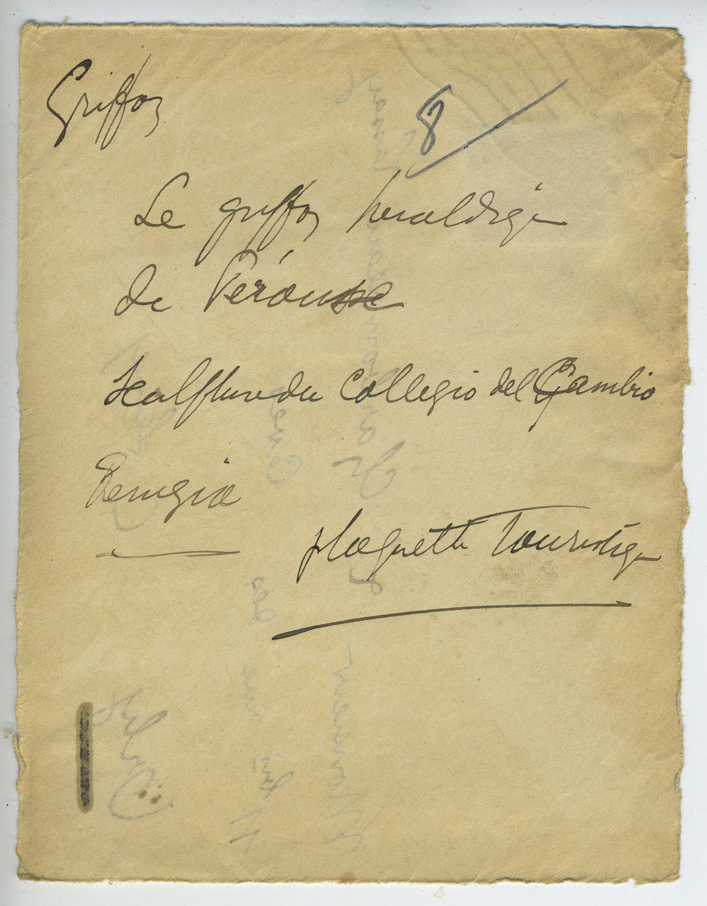 Griffon
8
Le griffon heraldique
de Pérouse
Sculpture du Collegio del Cambio
Perugia
plaquette Touristique